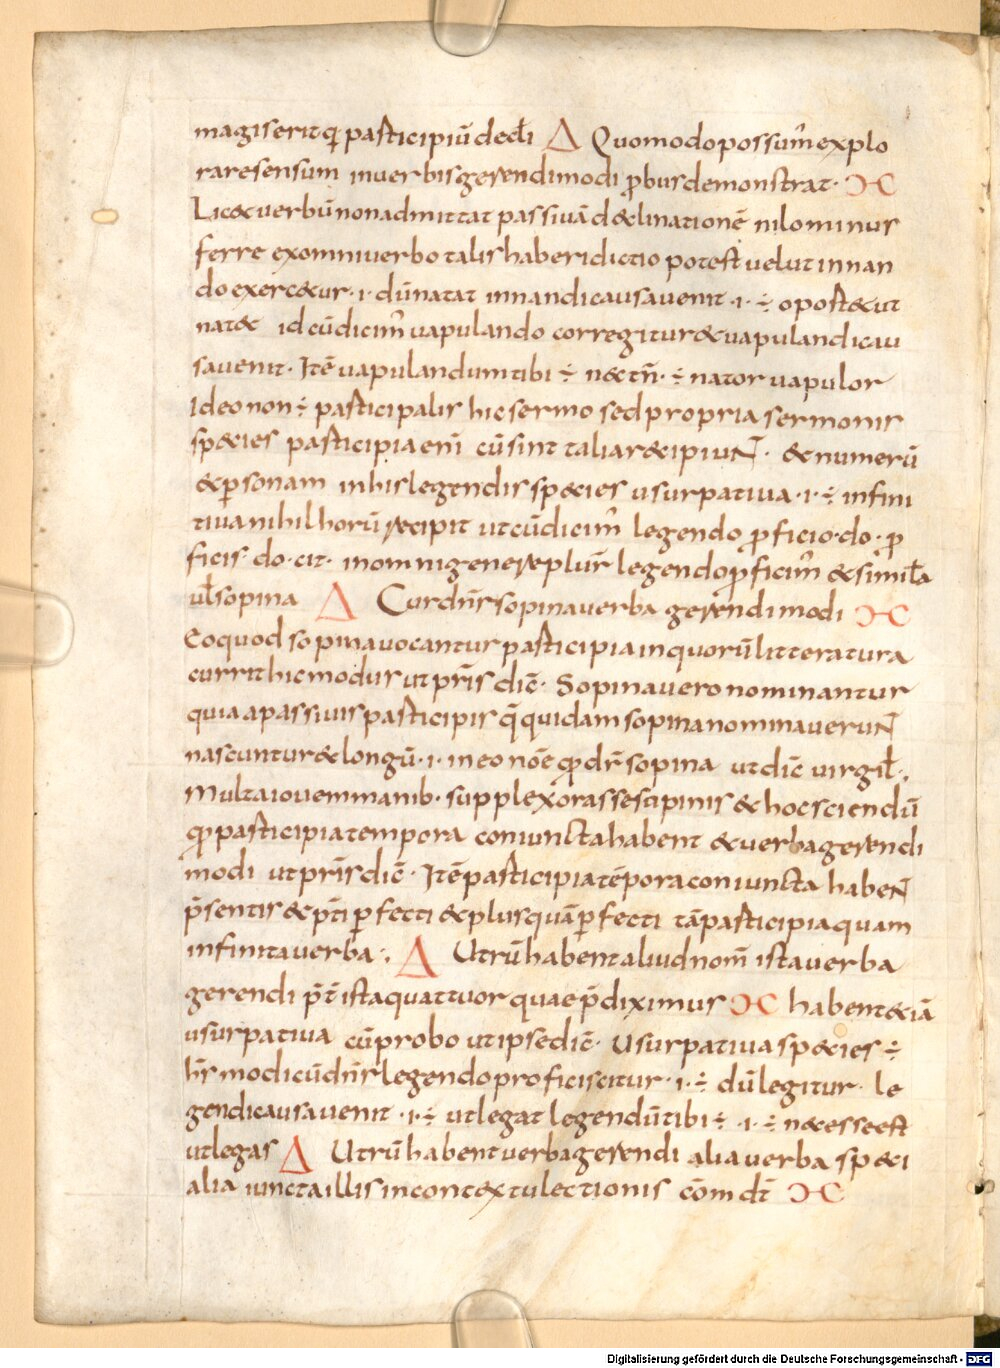 magis erit q̄ participiū decl̄i Δ Quomodo possum̄ explo
rare sensum in uerbis gerendi modi ꝓbus demonstrat · ϽC
Lic& uerbū non admittat passiuā d&linationē nilominus
ferre ex omni uerbo talis haberi dictio potest uelut innan
do exerc&ur · i · dū natat innandi causa uenit · i · ÷ oport& ut
nat& id cū dicim̄ uapulando corregitur & uapulandi cau
sa uenit · Itē uapulandum tibi ÷ n& tn̄ · ÷ nator uapulor
Ideo non ÷ participalis hic sermo sed propria sermonis
sp&ies participia enī cū sint talia r&ipiuNT · & numerū
& ꝑsonam in his legendis sp&ies usurpatiua · i · ÷ infini
tiua nihil horū recipit ut cū dicim̄ legendo ꝓficio · do · ꝓ
ficis · do · cit · in omni genere plur̄ legendo ꝓficim̄ & simil̄a
ul̄ sopina Δ Cur dn̄r sopina uerba gerendi modi ϽC
Eo quod sopina uocantur participia in quorū litteratura
currit hic modus ut prīs dic̄ · Sopina uero nominantur
quia a passiuis participiis q̄ quidam sopina nominaueruNT
nascuntur & longū · i · in eo nōe qđ dr̄ sopina ut dic̄ uirgil̄ ·,
Multa iouem manib · supplex orasse supinis & hoc sciendū
qđ participia tempora coniuncta habent & uerba gerendi
modi ut prīs dic̄ · Itē participia tēpora coniuncta habeNT
p̄sentis & p̄ti ꝑfecti & plusquā ꝑfecti tā participia quam
infinita uerba ·, Δ Utrū habent aliud nom̄ ista uerba
gerendi p̄t ista quattuor quae p̄diximus ϽC habent &iā
usurpatiua cū probo ut ipse dic̄ · Usurpatiua sp&ies ÷
h̄r modi cū dn̄r legendo proficiscitur · i · ÷ dū legitur · le
gendi causa uenit · i · ÷ ut legat legendū tibi ÷ · i · ÷ n&esse est
ut legas Δ Utrū habent uerba gerendi alia uerba sp&i
alia iuncta illis in cont&xtu lectionis cōm dt̄ ϽC